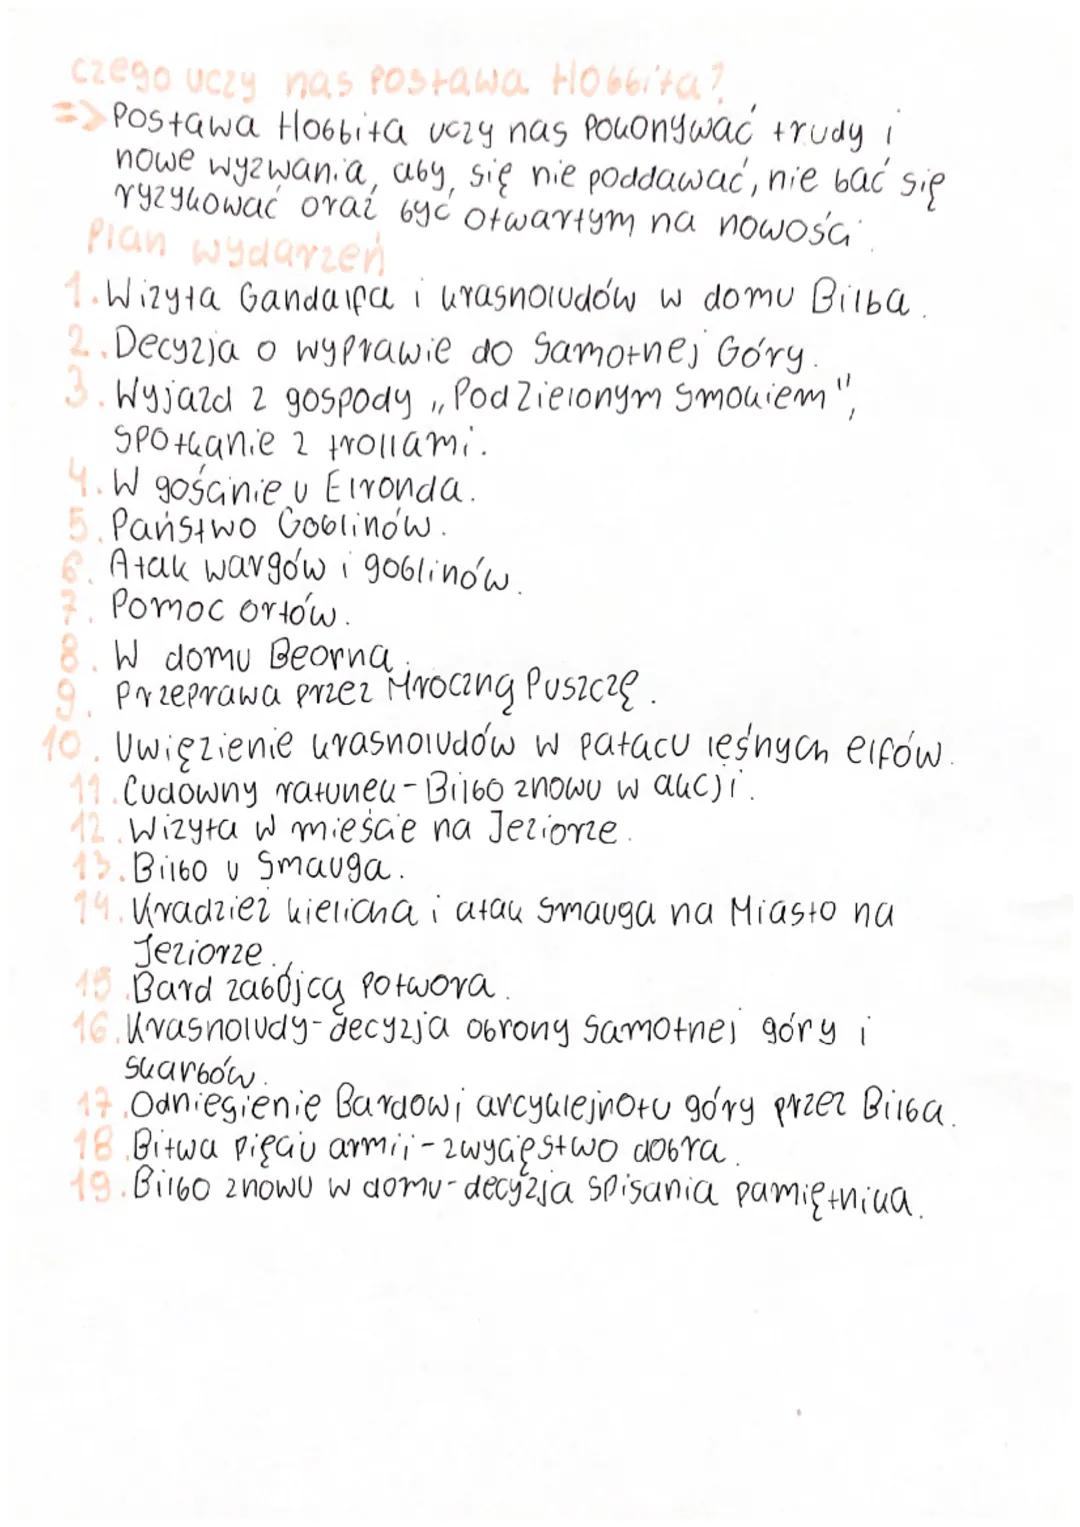 Czego uczy nas Postawa Hobbita?
=> Postawa Hobbita uczy nas pokonywać trudy i
nowe wyzwania, aby, się nie poddawać, nie bać się
ryzykować oraz być otwartym na nowości.
Plan wydarzeń
1. Wizyta Gandalfa i krasnoludów w domu Bilba.
2. Decyzja o wyprawie do Samotnej Góry.
3. Wyjazd z gospody „Pod Zielonym Smokiem",
spotkanie z trollami.
4. W gościnie u Elronda.
5. Państwo Goblinów.
6. Atak wargów i goblinów.
7. Pomoc orłów.
8. W domu Beorna.
9. Przeprawa przez Mroczną Puszczę.
10. Uwięzienie krasnoludów w pałacu leśnych elfów.
11. Cudowny ratunek - Bilbo znowu w akcji.
12. Wizyta w mieście na Jeziorze.
13. Bilbo u Smauga.
14. Kradzież kielicha i atak Smauga na Miasto na
Jeziorze.
15. Bard zabójcą potwora.
16. Krasnoludy - decyzja obrony Samotnej góry i
skarbów.
17. Odniesienie Bardowi arcyklejnotu góry przez Bilba.
18. Bitwa pięciu armii - zwycięstwo dobra.
19. Bilbo znowu w domu - decyzja spisania pamiętnika.